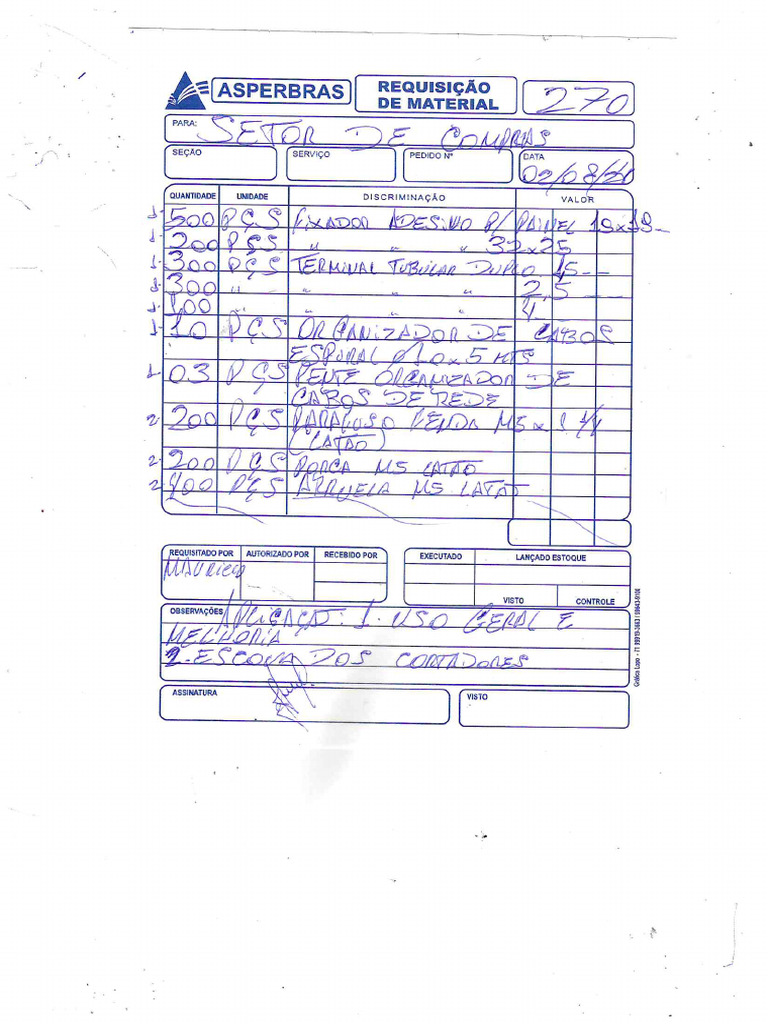 ASPERBRAS
REQUISIÇÃO
DE MATERIAL
270
PARA: SETOR DE COMPRAS
SEÇÃO SERVIÇO PEDIDO Nº DATA
02/08/21
QUANTIDADE UNIDADE DISCRIMINAÇÃO VALOR
1- 500 PÇS FIXADOR ADESIVO P/ PAINEL 19x19
1- 200 PÇS " " " 32x25
1- 300 PÇS TERMINAL TUBULAR DUPLO 1,5
1- 300 " " " " 2,5
1- 100 " " " " 4
1- 10 PÇS ORGANIZADOR DE CABOS
ESPIRAL 10x5 MTS
1- 03 PÇS PENTE ORGANIZADOR DE
CABOS DE REDE
2- 200 PÇS PARAFUSO FENDA M5x
(LATÃO)
2- 200 PÇS PORCA M5 LATÃO
2- 400 PÇS ARRUELA M5 LATÃO
REQUISITADO POR AUTORIZADO POR RECEBIDO POR EXECUTADO LANÇADO ESTOQUE
MAURICIO
VISTO CONTROLE
OBSERVAÇÕES APLICAÇÃO: 1. USO GERAL E
MELHORIA
2. ESCOVA DOS CONTADORES
ASSINATURA VISTO